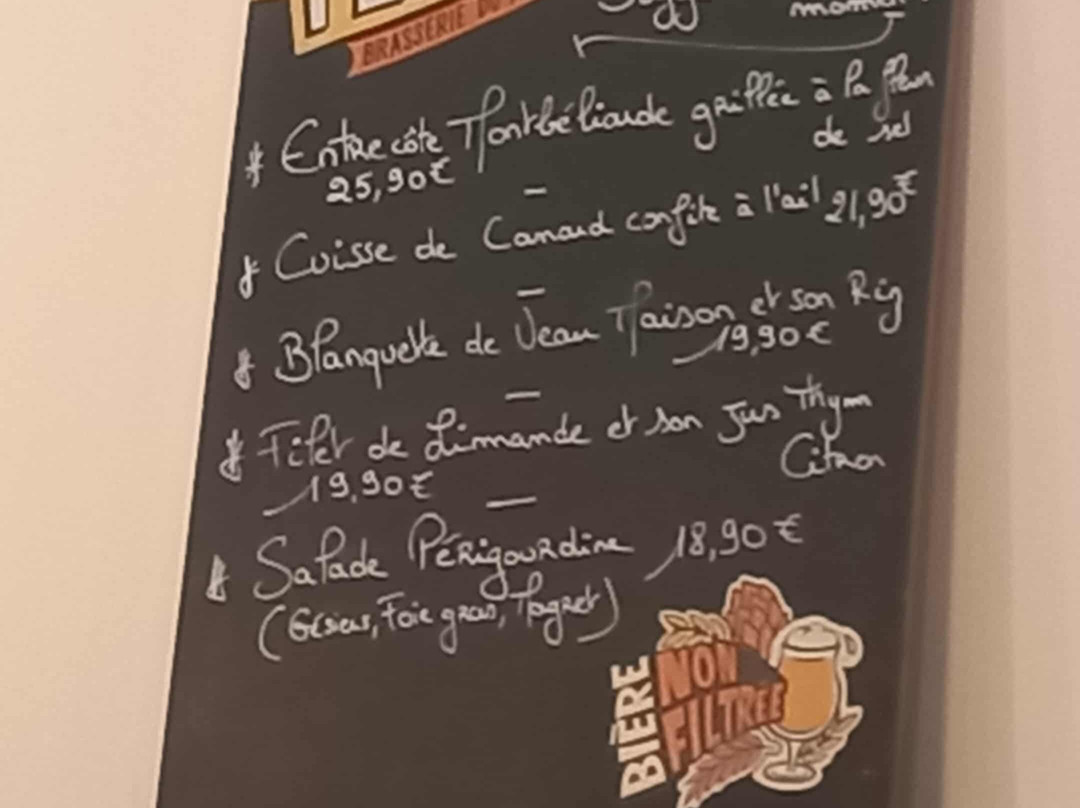 BRASSERIE DU
* Entrecôte Montbéliarde grillée à la fleur
de sel
25,90€
* Cuisse de Canard confite à l'ail 21,90€
* Blanquette de Veau Maison et son Riz
19,90€
* Filet de Limande et son Jus Thym
Citron
19,90€
* Salade Périgourdine 18,90€
(Gésiers, Foie gras, Magret)
BIÈRE
NON
FILTRÉE